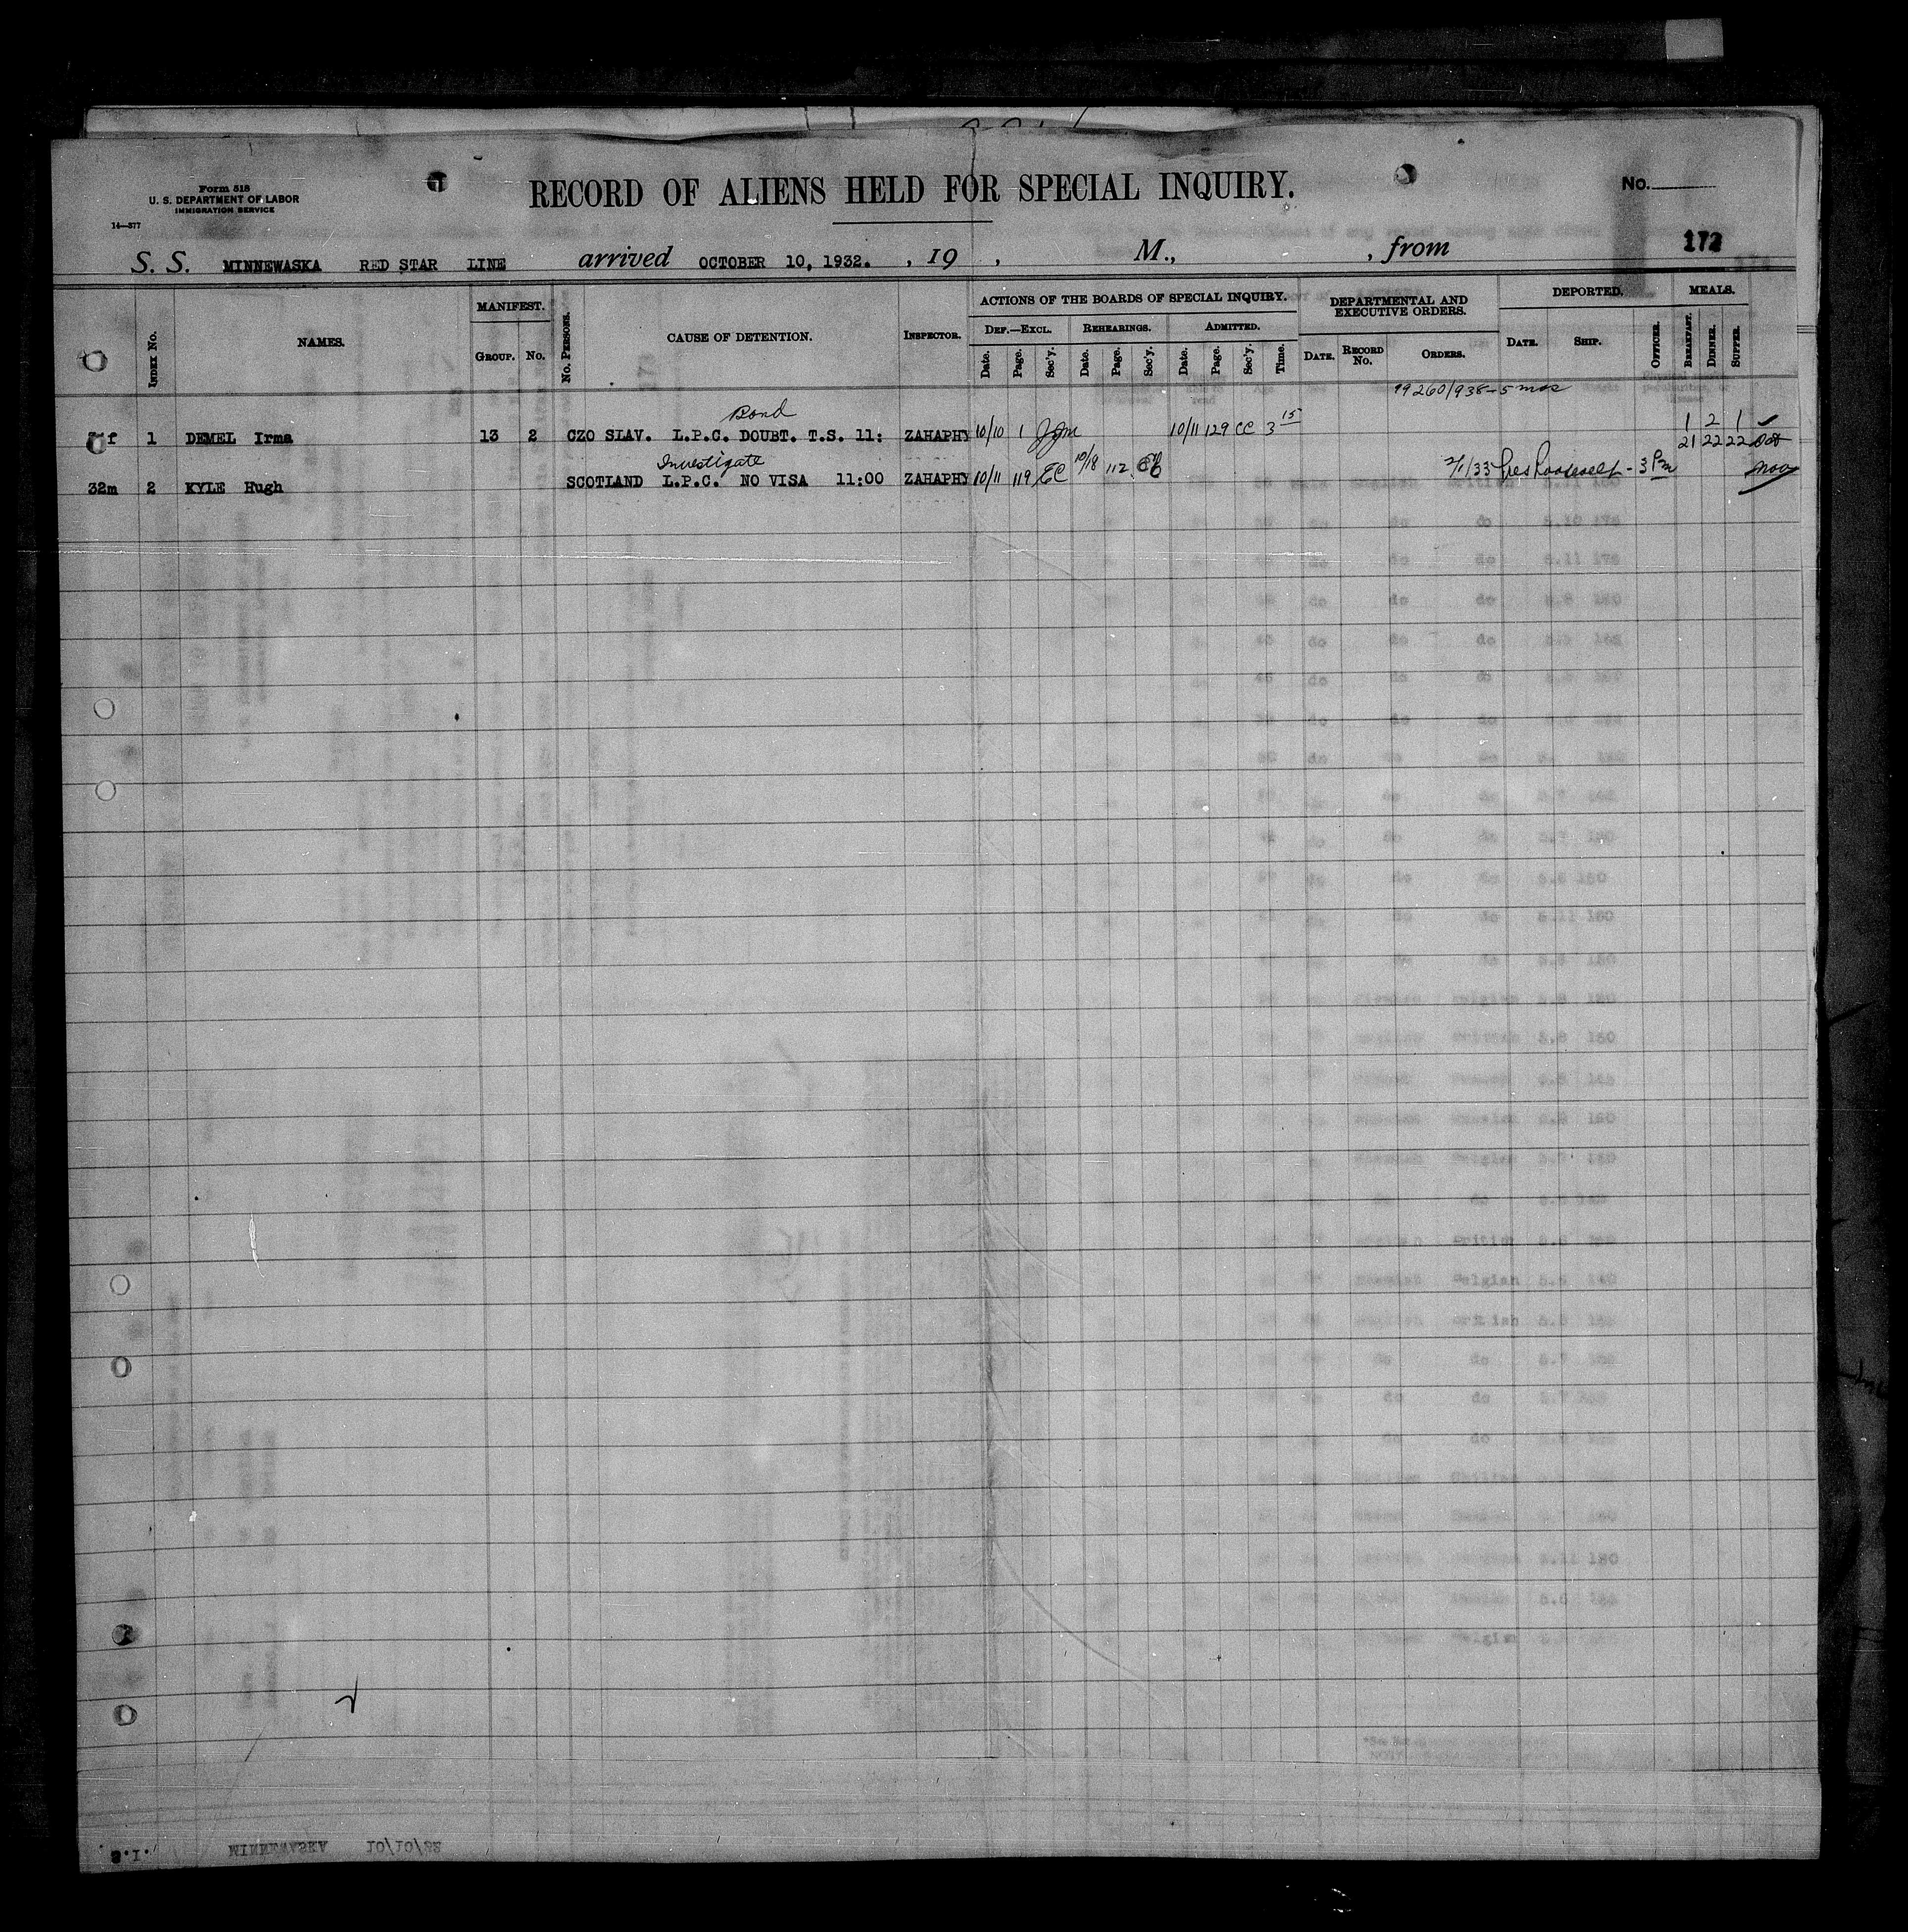 Form 518
U. S. DEPARTMENT OF LABOR
IMMIGRATION SERVICE
14—577
RECORD OF ALIENS HELD FOR SPECIAL INQUIRY.
No.
172
S. S. MINNEWASKA RED STAR LINE arrived OCTOBER 10, 1932. , 19 , M., , from
INDEX No.
NAMES.
MANIFEST.
GROUP. No.
No. PERSONS.
CAUSE OF DETENTION.
INSPECTOR.
ACTIONS OF THE BOARDS OF SPECIAL INQUIRY.
DEF.—EXCL. REHEARINGS. ADMITTED.
Date. Page. Sec'y. Date. Page. Sec'y. Date. Page. Sec'y. Time.
DEPARTMENTAL AND
EXECUTIVE ORDERS.
DATE. RECORD No. ORDERS.
DEPORTED.
DATE. SHIP. OFFICER.
MEALS.
BREAKFAST. DINNER. SUPPER.
99260/938-5 mos
Bond
f 1 DEMEL Irma 13 2 CZO SLAV. L.P.C. DOUBT. T.S. 11: ZAHAPHY 10/10 1 10/11 129 CC 3 15 1 2 1
21 22 22
Investigate
32m 2 KYLE Hugh SCOTLAND L.P.C. NO VISA 11:00 ZAHAPHY 10/11 119 EC 10/18 112 2/1/33 Pres Roosevelt - 3 Pm
S.I. MINNEWASKA 10/10/32